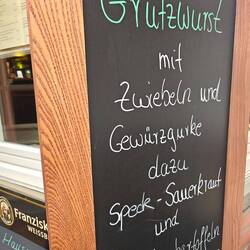 Grützwurst
mit
Zwiebeln und
Gewürzgurke
dazu
Speck-Sauerkraut
und
Franzisk
WEISSB